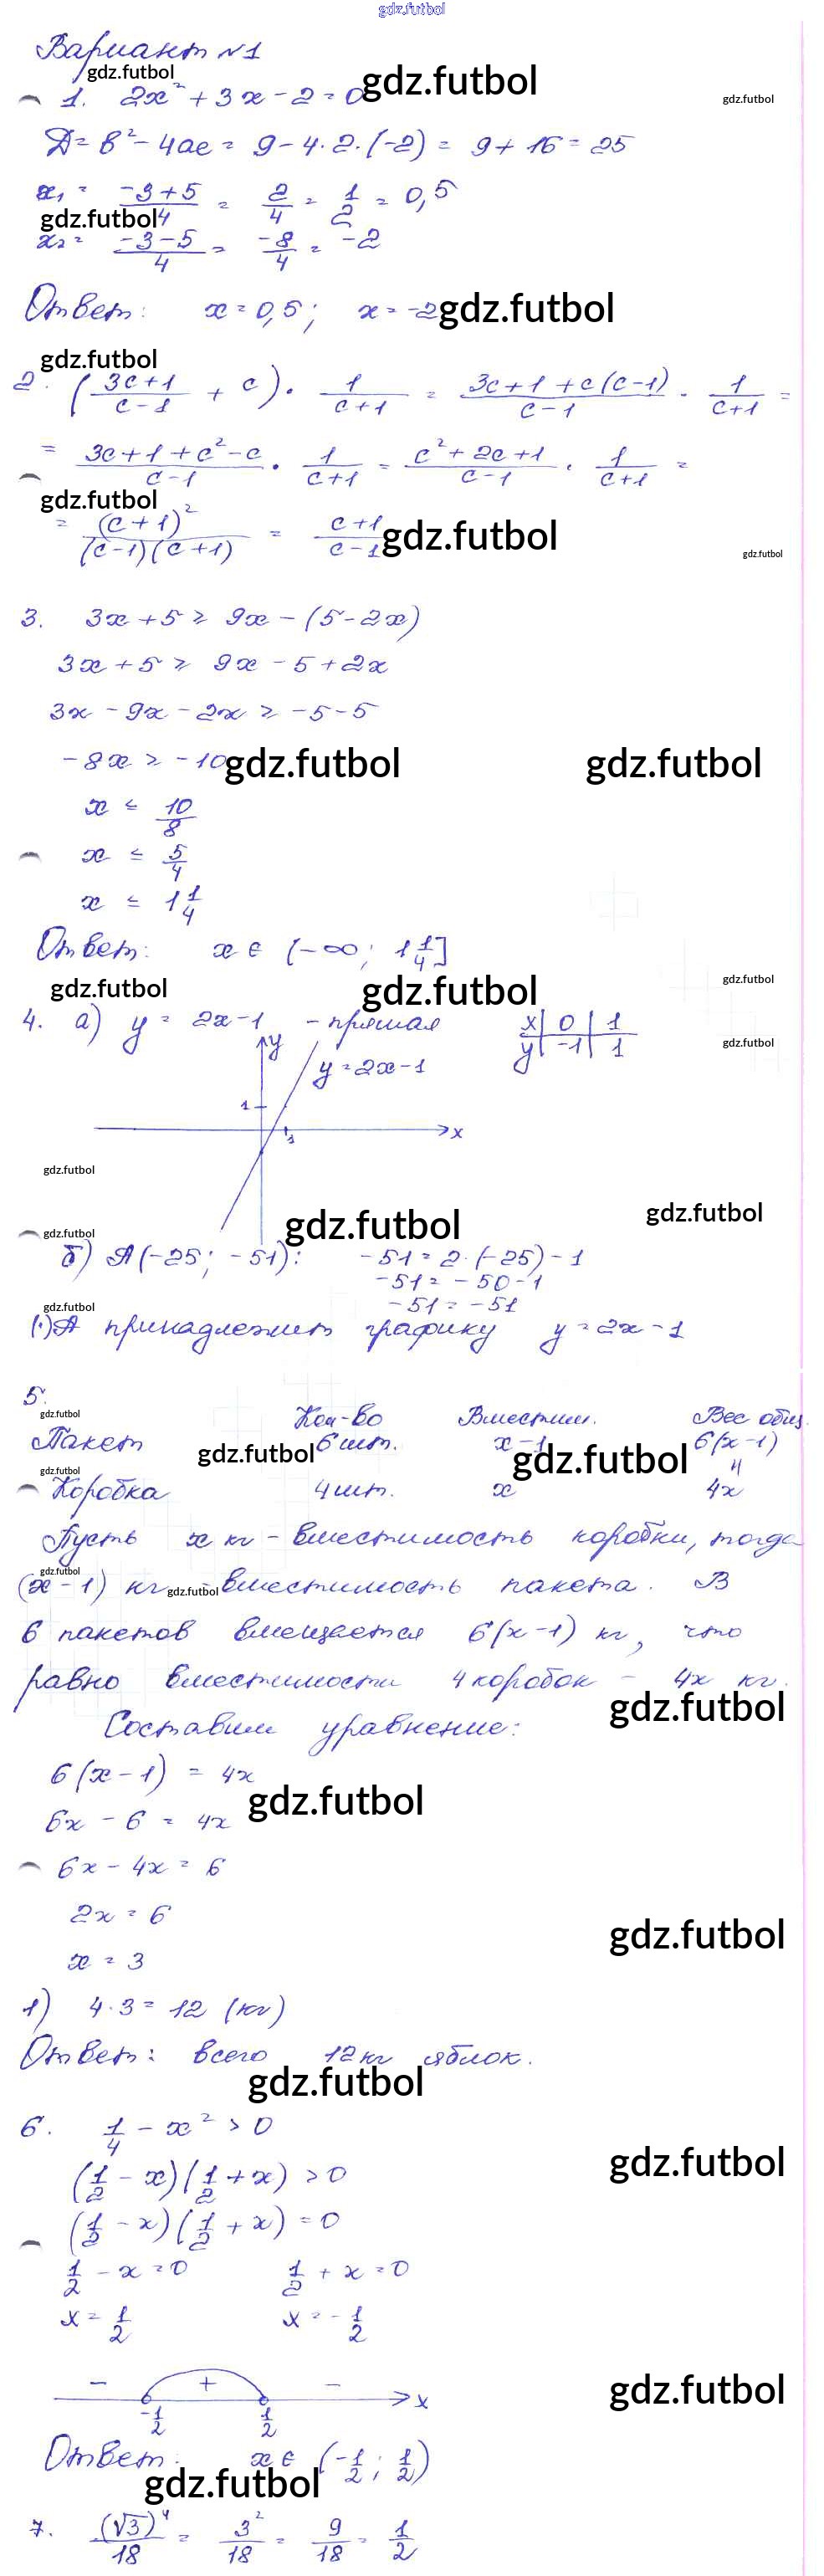 gdz.futbol
Вариант №1
gdz.futbol
gdz.futbol
gdz.futbol
1. 2x² + 3x - 2 = 0
Д = в² - 4ac = 9 - 4·2·(-2) = 9 + 16 = 25
x₁ = (-3+5)/4 = 2/4 = 1/2 = 0,5
gdz.futbol
x₂ = (-3-5)/4 = -8/4 = -2
Ответ: x = 0,5; x = -2
gdz.futbol
gdz.futbol
2. ((3c+1)/(c-1) + c) · 1/(c+1) = (3c+1+c(c-1))/(c-1) · 1/(c+1) =
= (3c+1+c²-c)/(c-1) · 1/(c+1) = (c²+2c+1)/(c-1) · 1/(c+1) =
gdz.futbol
= (c+1)²/((c-1)(c+1)) = (c+1)/(c-1)
gdz.futbol
gdz.futbol
3. 3x + 5 ≥ 9x - (5 - 2x)
3x + 5 ≥ 9x - 5 + 2x
3x - 9x - 2x ≥ -5 - 5
-8x ≥ -10
gdz.futbol
gdz.futbol
x ≤ 10/8
x ≤ 5/4
x ≤ 1 1/4
Ответ: x ∈ (-∞; 1 1/4]
gdz.futbol
gdz.futbol
gdz.futbol
4. а) y = 2x - 1 - прямая
x | 0 | 1
y | -1 | 1
gdz.futbol
y
y = 2x - 1
1
x
1
gdz.futbol
gdz.futbol
gdz.futbol
gdz.futbol
б) A(-25; -51): -51 = 2·(-25) - 1
-51 = -50 - 1
-51 = -51
gdz.futbol
(·)A принадлежит графику y = 2x - 1
5.
gdz.futbol
Кол-во Вместим. Вес общ.
Пакет 6 шт. x-1 6(x-1)
gdz.futbol
gdz.futbol
gdz.futbol
Коробка 4 шт. x 4x
Пусть x кг - вместимость коробки, тогда
gdz.futbol
(x-1) кг - вместимость пакета. В
gdz.futbol
6 пакетов вмещается 6(x-1) кг, что
равно вместимости 4 коробок - 4x кг.
gdz.futbol
Составим уравнение:
6(x-1) = 4x
gdz.futbol
6x - 6 = 4x
6x - 4x = 6
2x = 6
gdz.futbol
x = 3
1) 4·3 = 12 (кг)
Ответ: всего 12 кг яблок.
gdz.futbol
6. 1/4 - x² > 0
gdz.futbol
(1/2 - x)(1/2 + x) > 0
(1/2 - x)(1/2 + x) = 0
1/2 - x = 0 1/2 + x = 0
x = 1/2 x = -1/2
- + -
x
gdz.futbol
-1/2 1/2
Ответ: x ∈ (-1/2; 1/2)
gdz.futbol
7. (√3)⁴/18 = 3²/18 = 9/18 = 1/2